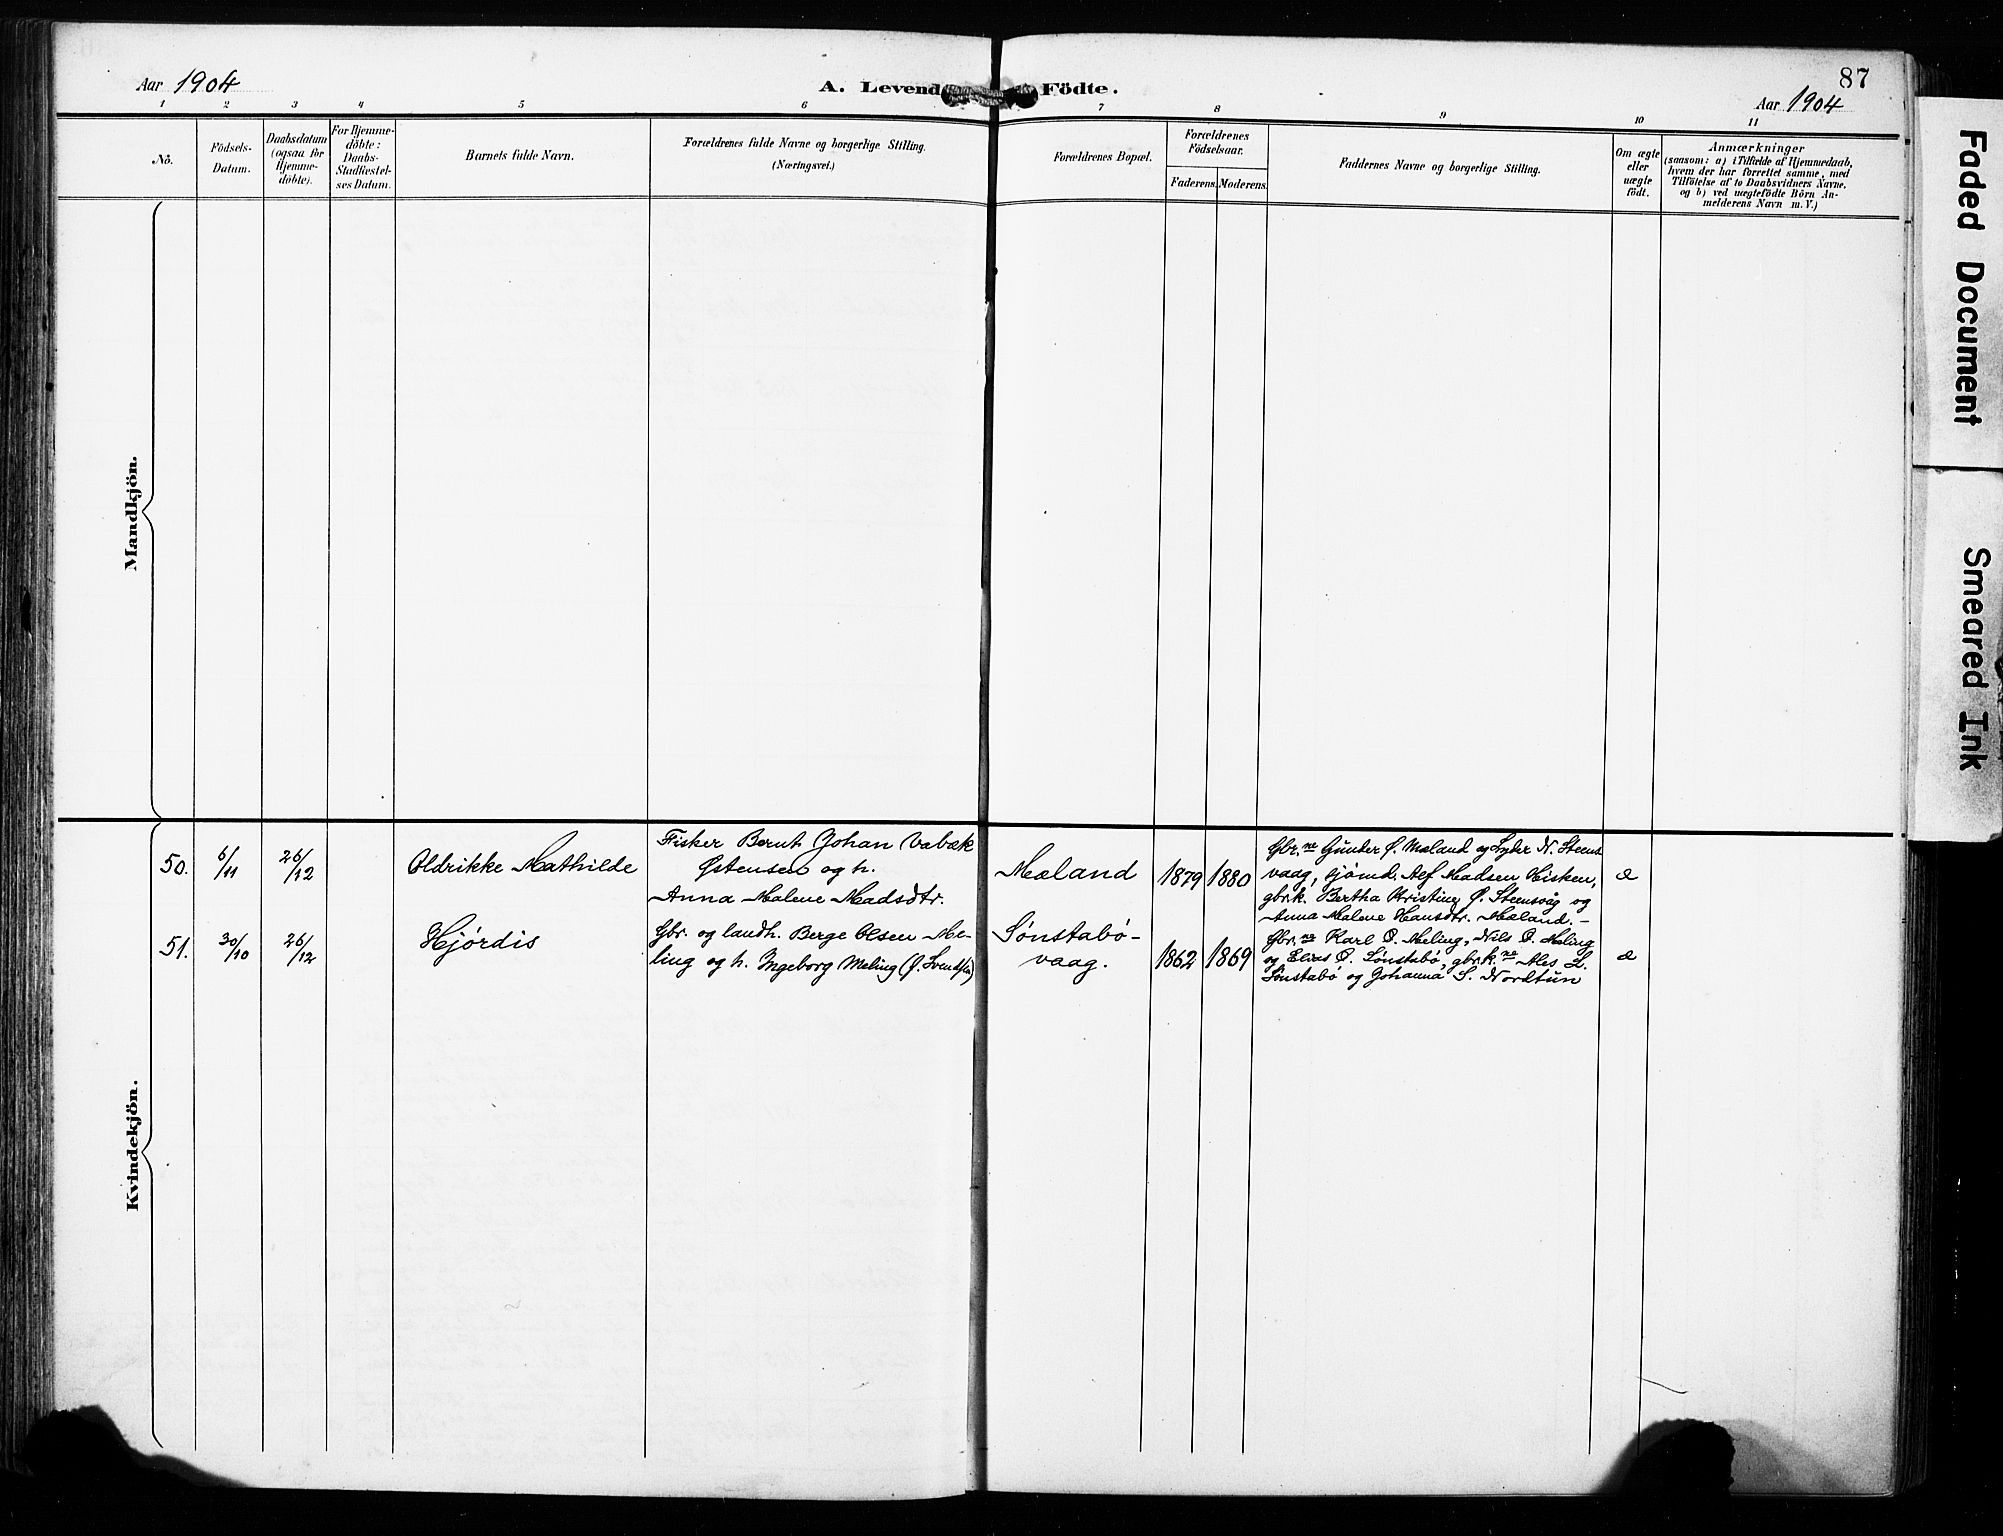 87
Aar 1904
A. Levende Födte.
Aar 1904
1 2 3 4 5 6 7 8 9 10 11
Nô.
Födsels-
Datum.
Daabsdatum
(ogsaa for
Hjemme-
döbte).
For Hjemme-
döbte:
Daabs-
Stadfæstel-
ses Datum.
Barnets fulde Navn.
Forældrenes fulde Navne og borgerlige Stilling.
(Næringsvei.)
Forældrenes Bopæl.
Forældrenes
Födselsaar.
Faderens. Moderens.
Faddernes Navne og borgerlige Stilling.
Om ægte
eller
uægte
födt.
Anmærkninger
(saasom: a) i Tilfælde af Hjemmedaab,
hvem der har forrettet samme, med
Tilföielse af to Daabsvidners Navne,
og b) ved uægtefödte Börn An-
melderens Navn m. V.)
Mandkjön.
Kvindekjön.
50.
6/11
26/12
Oldrikke Mathilde
Fisker Bernt Johan Vabæk
Østensen og h.
Anna Malene Madsdtr.
Mæland
1879
1880
Gbr.ne Gunder Ø. Mæland og Lyder N. Steens
vaag, sjømd. Alf Madsen Hisken,
gbrk. Bertha Kristine Ø. Steensvåg og
Anna Malene Hansdtr. Mæland. –
æ
51.
30/10
26/12
Hjørdis
Gbr. og landh. Berge Olsen Me-
ling og h. Ingeborg Meling (f. Svendsen)
Sønstabø-
vaag.
1862
1869
Gbr.ne Karl O. Meling, Nils O. Meling
og Elias O. Sønstabø, gbrk.ne Ales L.
Sønstabø og Johanna S. Nordtun
æ
Faded Document
Smeared Ink